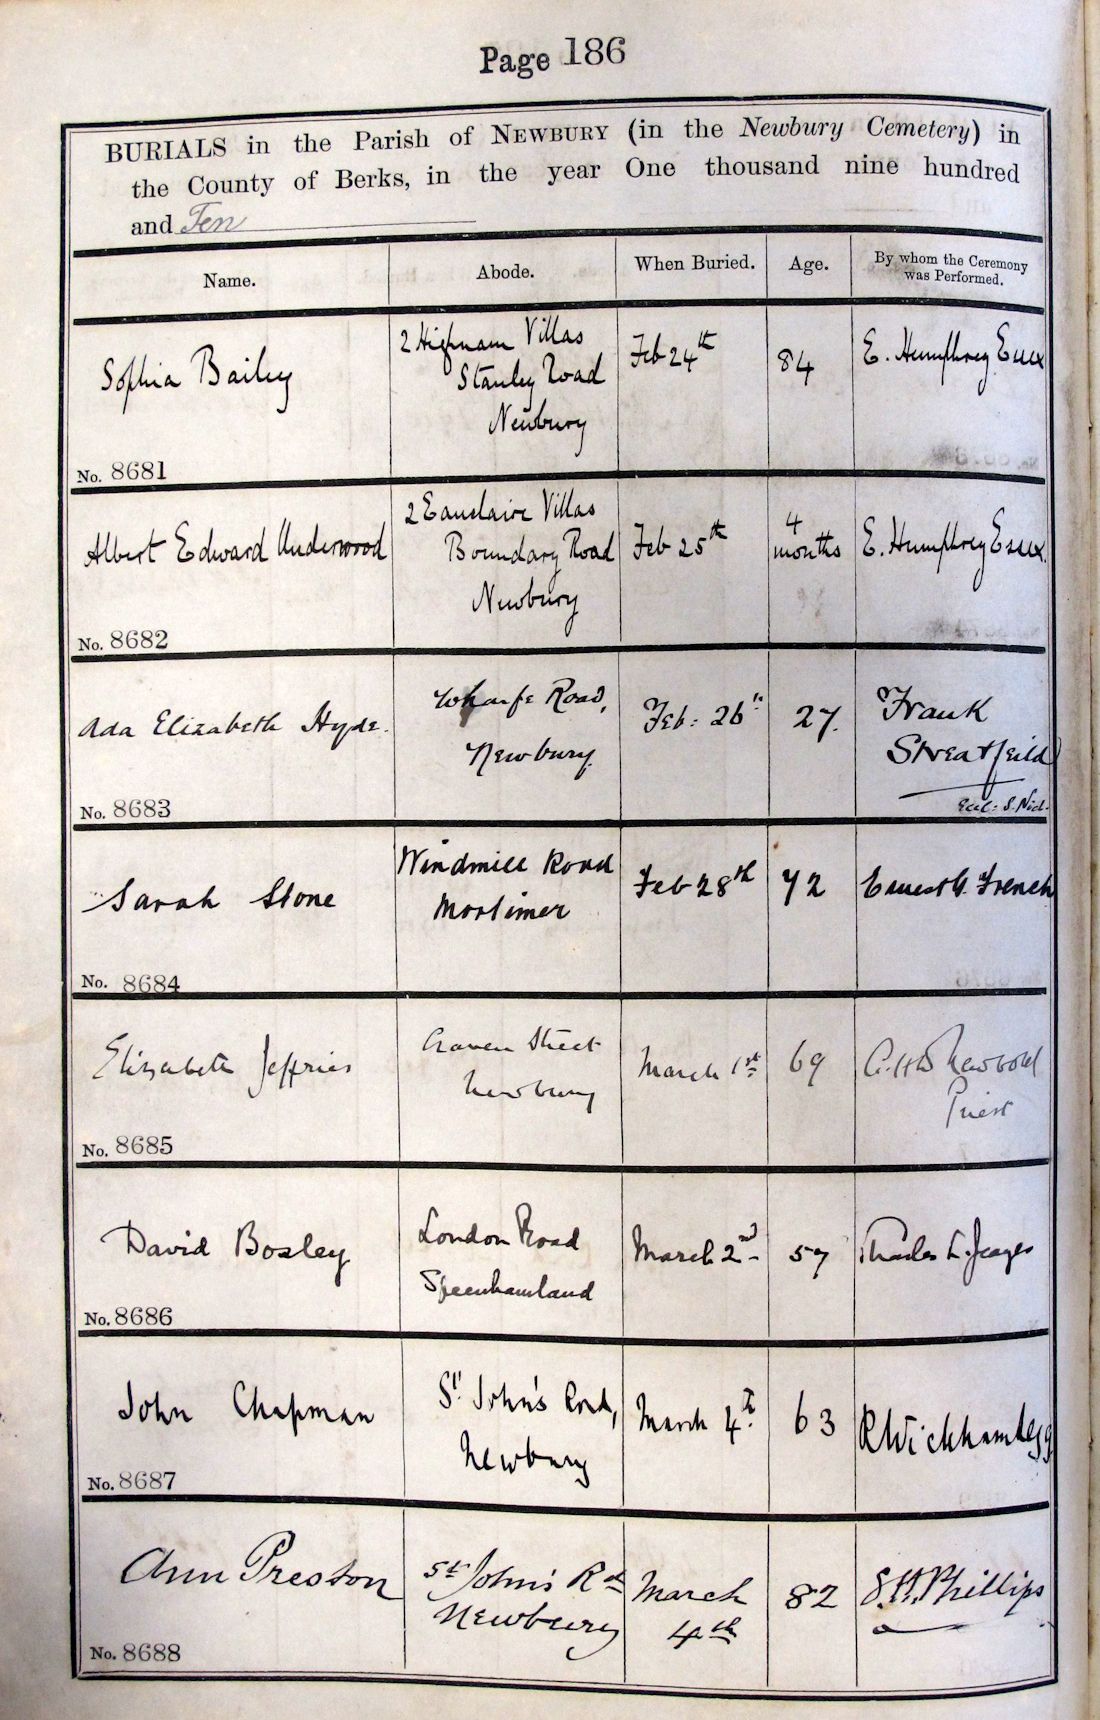 Page 186
BURIALS in the Parish of NEWBURY (in the Newbury Cemetery) in
the County of Berks, in the year One thousand nine hundred
and Ten
Name.
Abode.
When Buried.
Age.
By whom the Ceremony
was Performed.
Sophia Bailey
2 Highnam Villas
Stanley Road
Newbury
Feb 24th
84
E. Humphrey Essex
No. 8681
Albert Edward Underwood
2 Eauclaire Villas
Boundary Road
Newbury
Feb 25th
4
months
E. Humphrey Essex.
No. 8682
Ada Elizabeth Hyde.
Wharfe Road,
Newbury.
Feb: 26th
27.
Frank
Streatfeild
Eccl: S. Nid.
No. 8683
Sarah Stone
Windmill Road
Mortimer
Feb 28th
72
Ernest G. French
No. 8684
Elizabeth Jeffries
Craven Street
Newbury
March 1st
69
Newbold
Priest
No. 8685
David Bosley
London Road
Speenhamland
March 2nd
57
Charles L.
No. 8686
John Chapman
St John's Road,
Newbury
March 4th
63
R Wickham Legg
No. 8687
Ann Preston
St John's Rd
Newbury
March
4th
82
S. H. Phillips
No. 8688